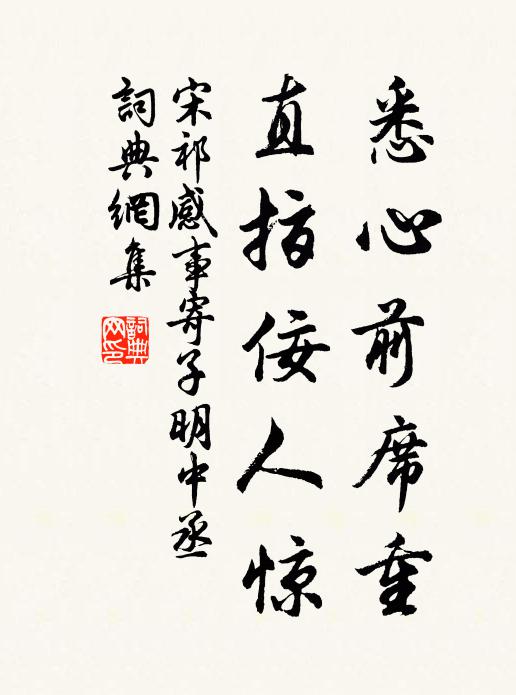 悉心前席重
直指佞人惊
宋祁感事寄子明中丞
詞典網集
詞典网印